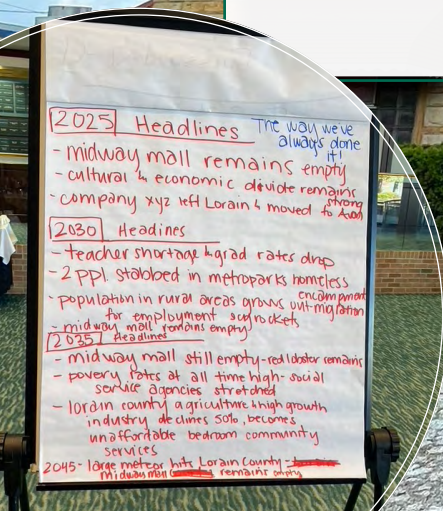 2025 Headlines The way we've
always done
it!
- midway mall remains empty
- cultural & economic divide remains
strong
- company xyz left Lorain & moved to Avon
2030 Headines
- teacher shortage & grad rates drop
- 2 ppl stabbed in metroparks homeless
encampment
- population in rural areas grows out-migration
for employment skyrockets
- midway mall remains empty
2035 Headlines
- midway mall still empty - red lobster remains
- povery rates at all time high - social
service agencies stretched
- lorain county agriculture & high growth
industry declines 50%, becomes
unaffordable bedroom community
services
2045 - large meteor hits Lorain County -
midway mall remains empty